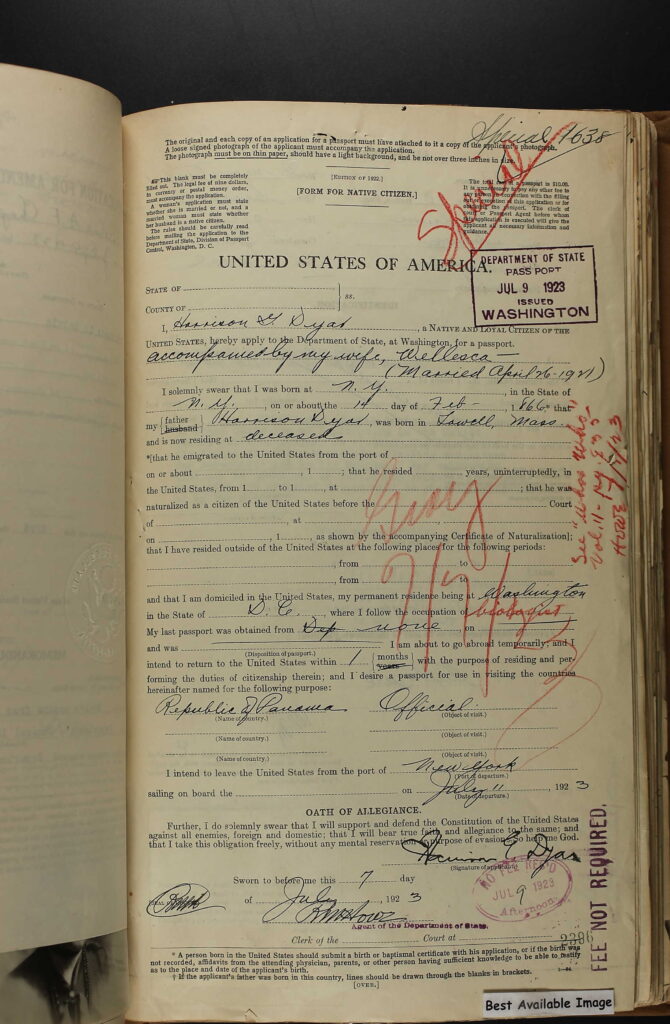 Special 1638
The original and each copy of an application for a passport must have attached to it a copy of the applicant's photograph.
A loose signed photograph of the applicant must accompany the application.
The photograph must be on thin paper, should have a light background, and be not over three inches in size.
[EDITION OF 1922.]
[FORM FOR NATIVE CITIZEN.]
This blank must be completely
filled out. The legal fee of nine dollars,
in currency or postal money order,
must accompany the application.
A woman's application must state
whether she is married or not, and a
married woman must state whether
her husband is a native citizen.
The rules should be carefully read
before mailing the application to the
Department of State, Division of Passport
Control, Washington, D. C.
The total cost of a passport is $10.00.
Special
UNITED STATES OF AMERICA.
DEPARTMENT OF STATE
PASSPORT
JUL 9 1923
ISSUED
WASHINGTON
STATE OF
ss.
COUNTY OF
I, Harrison G. Dyar, a NATIVE AND LOYAL CITIZEN OF THE
UNITED STATES, hereby apply to the Department of State, at Washington, for a passport.
accompanied by my wife, Wellesca —
(Married April 26-1921)
I solemnly swear that I was born at N.Y., in the State of
N.Y., on or about the 14 day of Feb -, 1866, that
my {father husband} Harrison Dyar, was born in Lowell, Mass.
and is now residing at deceased
*[that he emigrated to the United States from the port of
on or about , 1 ; that he resided years, uninterruptedly, in
the United States, from 1 to 1 , at ; that he was
naturalized as a citizen of the United States before the Court
of , at
on , 1 , as shown by the accompanying Certificate of Naturalization];
that I have resided outside of the United States at the following places for the following periods:
, from to
, from to
and that I am domiciled in the United States, my permanent residence being at Washington
in the State of D.C., where I follow the occupation of biologist
My last passport was obtained from Dep none, on
and was I am about to go abroad temporarily; and I
(Disposition of passport.)
intend to return to the United States within 1 {months years} with the purpose of residing and per-
forming the duties of citizenship therein; and I desire a passport for use in visiting the countries
hereinafter named for the following purpose:
Republic of Panama Official
(Name of country.) (Object of visit.)
(Name of country.) (Object of visit.)
(Name of country.) (Object of visit.)
I intend to leave the United States from the port of New York
(Port of departure.)
sailing on board the on July 11, 1923
(Date of departure.)
See "Whos Who"
OATH OF ALLEGIANCE.
Further, I do solemnly swear that I will support and defend the Constitution of the United States
against all enemies, foreign and domestic; that I will bear true faith and allegiance to the same; and
that I take this obligation freely, without any mental reservation or purpose of evasion: So help me God.
Harrison G. Dyar
(Signature of applicant.)
Sworn to before me this 7 day
of July, 1923
JUL 9 1923
Afternoon
Agent of the Department of State.
Clerk of the Court at
FEE NOT REQUIRED.
* A person born in the United States should submit a birth or baptismal certificate with his application, or if the birth was
not recorded, affidavits from the attending physician, parents, or other person having sufficient knowledge to be able to testify
as to the place and date of the applicant's birth.
† If the applicant's father was born in this country, lines should be drawn through the blanks in brackets.
[OVER.]
Best Available Image